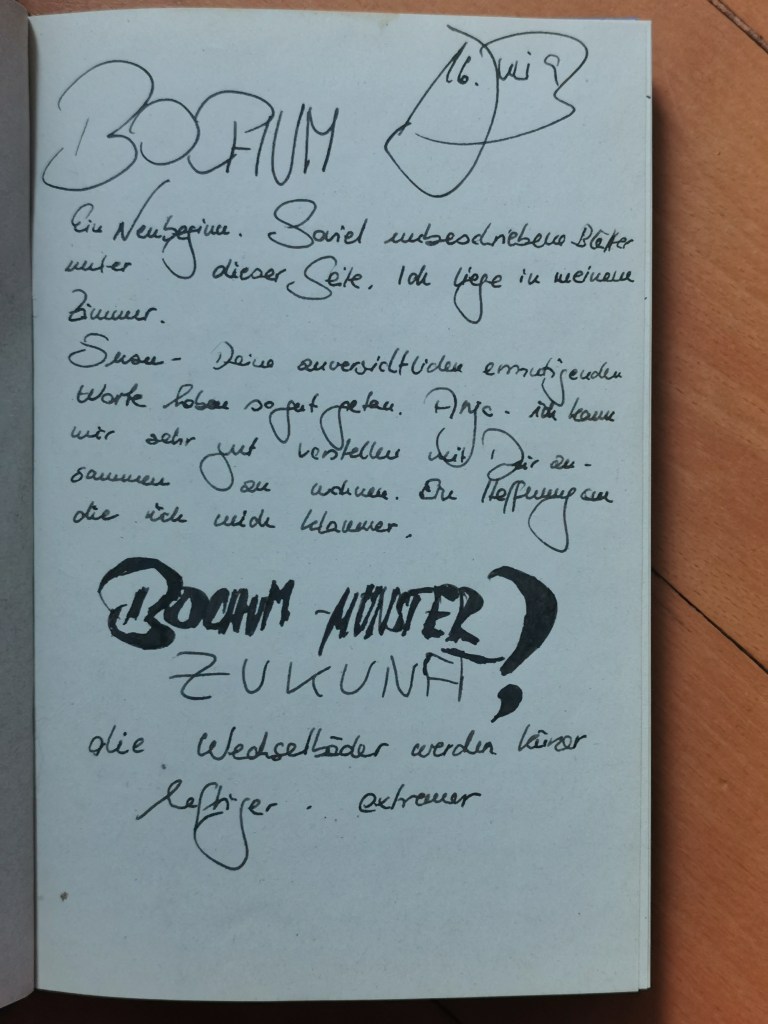 BOCHUM
16. Juni 93
Ein Neubeginn. Soviel unbeschriebene Blätter
unter dieser Seite. Ich liege in meinem
Zimmer.
Susan - Deine zuversichtlichen ermutigenden
Worte haben so gut getan. Anja - ich kann
mir sehr gut vorstellen mit Dir zu-
sammen zu wohnen. Eine Hoffnung an
die ich mich klammer.
BOCHUM - MÜNSTER?
ZUKUNFT
die Wechselbäder werden kürzer
heftiger. extremer